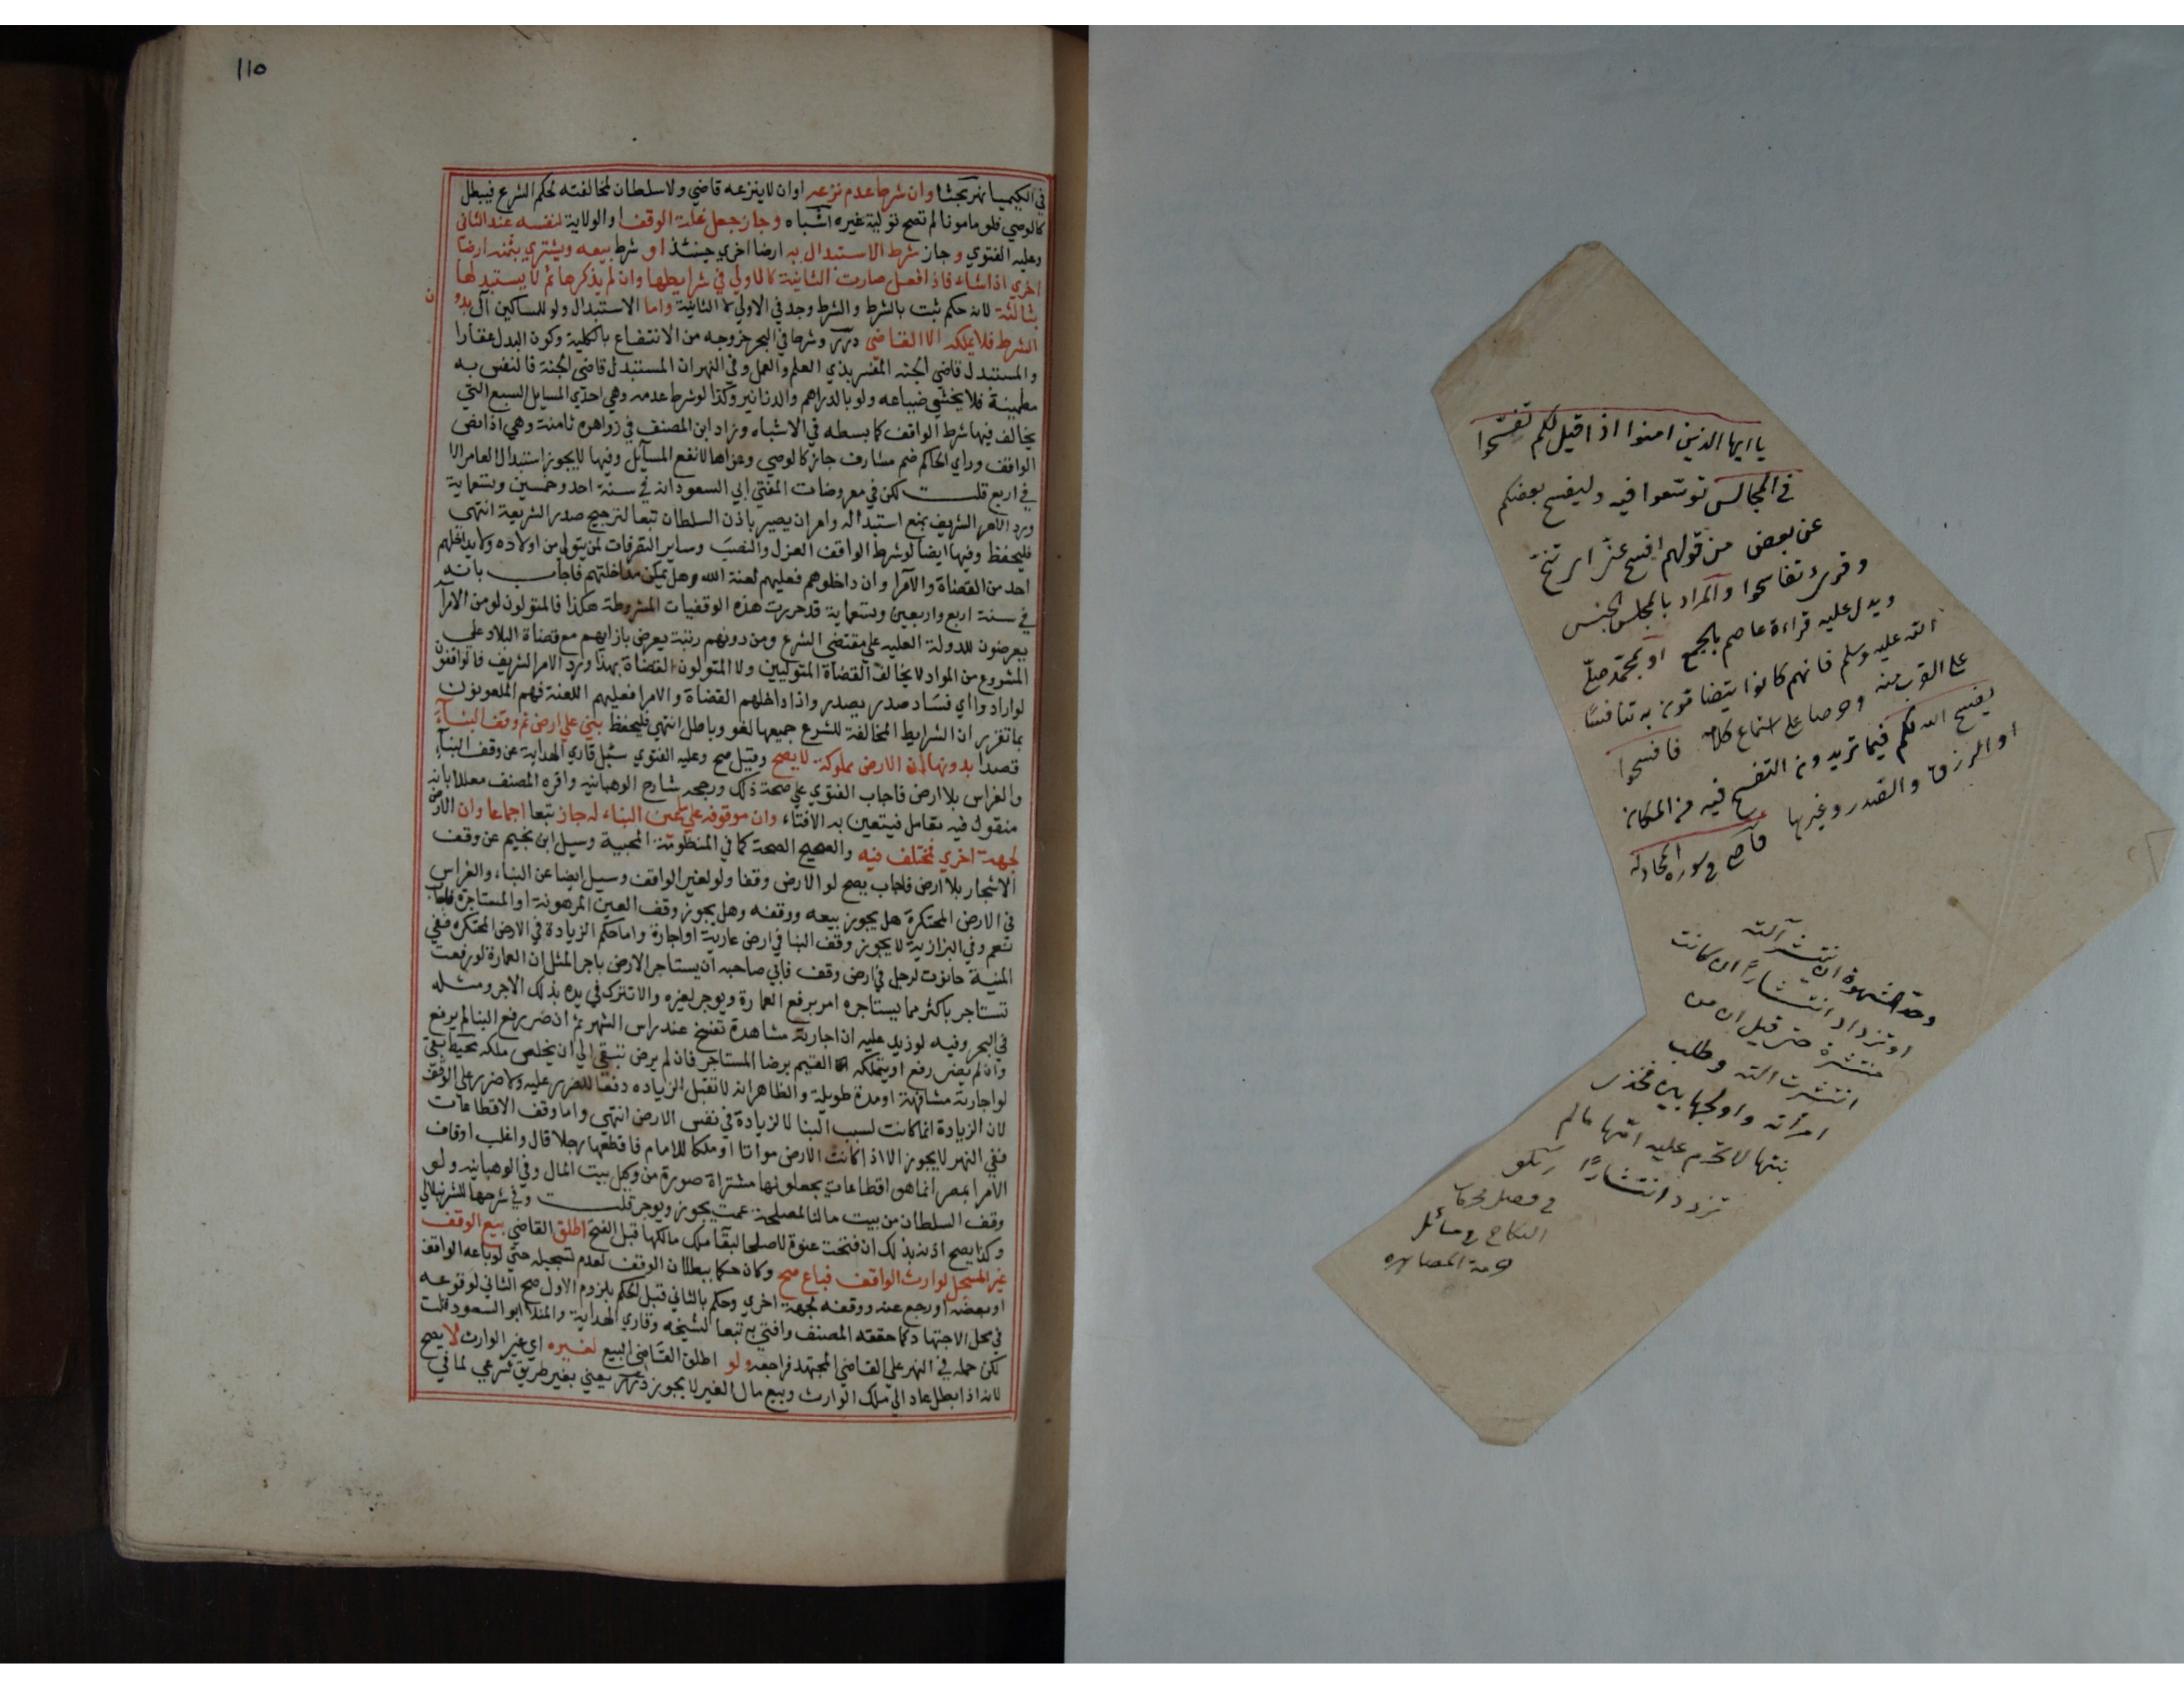 110
في الكيميا نهر بحثا وان شرط عدم نزعه او ان لا ينزعه قاضي ولا سلطان لمخالفته لحكم الشرع فيبطل
كالوصي فلو مامونا لم تصح تولية غيره اشباه وجاز جعل غلة الوقف او الولاية لنفسه عند الثاني
وعليه الفتوي وجاز شرط الاستبدال به ارضا اخري حينئذ او شرط بيعه ويشتري بثمنه ارضا
اخري اذا شاء فاذا فعل صارت الثانية كالاولي في شرايطها وان لم يذكرها ثم لا يستبدلها
بثالثة لانه حكم ثبت بالشرط والشرط وجد في الاولي لا الثانية واما الاستبدال ولو للمساكين آل بدون
الشرط فلا يملكه الا القاضي درر وشرط في البحر خروجه من الانتفاع بالكلية وكون البدل عقارا
والمستبدل قاضي الجنة المفسر بذي العلم والعمل وفي النهر ان المستبدل قاضي الجنة فالنفس به
مطمينة فلا يخشي ضياعه ولو بالدراهم والدنانير وكذا لو شرط عدمه وهي احدي المسايل السبع التي
يخالف فيها شرط الواقف كما بسطه في الاشباه وزاد ابن المصنف في زواهره ثامنة وهي اذا نص
الواقف وراي الحاكم ضم مشارف جاز كالوصي وعزاها لانفع المسآيل وفيها لا يجوز استبدال العامر الا
في اربع قلت لكن في معروضات المفتي ابي السعود انه في سنة احد وخمسين وتسعماية
ورد الامر الشريف بمنع استبداله وامر ان يصير باذن السلطان تبعا لترجيح صدر الشريعة انتهي
فليحفظ وفيها ايضا لو شرط الواقف العزل والنصب وساير التصرفات لمن يتولي من اولاده ولا يداخلهم
احد من القضاة والامرا وان داخلوهم فعليهم لعنة الله وهل يمكن مداخلتهم فاجاب بانه
في سنة اربع واربعين وتسعماية قد حررت هذه الوقفيات المشروطة هكذا فالمتولون لو من الامرآ
يعرضون للدولة العليه علي مقتضي الشرع ومن دونهم رتبة يعرض بارايهم مع قضاة البلاد علي
المشروع من المواد لا يخالف القضاة المتوليين ولا المتولون القضاة بهذا ورد الامر الشريف فالواقفون
لو ارادوا اي فساد صدر يصدر واذا داخلهم القضاة والامرا فعليهم اللعنة فهم الملعونون
بما تقرر ان الشرايط المخالفة للشرع جميعها لغو وباطل انتهي فليحفظ بني علي ارض ثم وقف البنآء
قصدا بدونها ان الارض مملوكة لا يصح وقيل صح وعليه الفتوي سئل قاري الهداية عن وقف البنآء
والغراس بلا ارض فاجاب الفتوي علي صحة ذلك ورجحه شارح الوهبانيه واقره المصنف معللا بانه
منقول فيه تعامل فيتعين به الافتاء وان موقوفه علي ما عين البناء له جاز تبعا اجماعا وان الارض
لجهة اخري فمختلف فيه والصحيح الصحة كما في المنظومة المحبية وسيل ابن نجيم عن وقف
الاشجار بلا ارض فاجاب يصح لو الارض وقفا ولو لغير الواقف وسيل ايضا عن البناء والغراس
في الارض المحتكرة هل يجوز بيعه ووقفه وهل يجوز وقف العين المرهونة او المستاجرة فاجاب
نعم وفي البزازية لا يجوز وقف البنا في ارض عارية او اجارة واما حكم الزيادة في الارض المحتكره ففي
المنية حانوت لرجل في ارض وقف فابي صاحبه ان يستاجر الارض باجر المثل ان العمارة لو رفعت
تستاجر باكثر مما يستاجره امر برفع العمارة ويوجر لغيره والا تترك في يده بذلك الاجر ومثله
في البحر وفيه لو زيد عليه ان اجارته مشاهرة تفسخ عند راس الشهر ثم ان ضر رفع البنا لم يرفع
وان لم يضر رفع او يتملكه القيم برضا المستاجر فان لم يرض تبقي الي ان يخلص ملكه محيط بقي
لو اجارته مسانهة او مدة طويلة والظاهر انه لا تقبل الزياده دفعا للضرر عليه ولا ضرر علي الوقف
لان الزيادة انما كانت بسبب البنا لا لزيادة في نفس الارض انتهي واما وقف الاقطاعات
ففي النهر لا يجوز الا اذا كانت الارض مواتا او ملكا للامام فاقطعها رجلا قال واغلب اوقاف
الامرا بمصر انما هو اقطاعات يجعلونها مشتراة صورة من وكيل بيت المال وفي الوهبانيه ولو
وقف السلطان من بيت مالنا لمصلحة عمت يجوز ويوجر قلت وفي شرحها للشرنبلالي
وكذا يصح اذنه بذلك ان فتحت عنوة لا صلحا لبقا ملك مالكها قبل الفتح اطلق القاضي بيع الوقف
غير المسجل لوارث الواقف فباع صح وكان حكما ببطلان الوقف لعدم تسجيله حتي لو باعه الواقف
او بعضه او رجع عنه ووقفه لجهة اخري وحكم بالثاني قبل الحكم بلزوم الاول صح الثاني لوقوعه
في محل الاجتهاد كما حققه المصنف وافتي به تبعا لشيخه وقاري الهداية والمنلا ابو السعود قلت
لكن حمله في النهر علي القاضي المجتهد فراجعه ولو اطلق القاضي البيع لغيره اي غير الوارث لا يصح
لانه اذا بطل عاد الي ملك الوارث وبيع مال الغير لا يجوز درر يعني بغير طريق شرعي لما في
يا ايها الذين امنوا اذا قيل لكم تفسحوا
في المجالس توسعوا فيه وليفسح بعضكم
عن بعض من قولهم افسح عني اي تنح
وقرئ تفاسحوا والمراد بالمجلس الجنس
ويدل عليه قراءة عاصم بالجمع او مجلس محمد صلي
الله عليه وسلم فانهم كانوا يتضامون به تنافسا
علي القرب منه وحرصا علي استماع كلامه فافسحوا
يفسح الله لكم فيما تريدون التفسح فيه من المكان
او الرزق والصدر وغيرها قاضي في سورة المجادله
وحد الشهوة ان ينتشر آلته
او تزداد انتشارا ان كانت
منتشرة حتي قيل ان من
انتشرت آلته وطلب
امرأته واولجها بين فخذي
بنتها لا تحرم عليه امها ما لم
تزدد انتشارا
في فصل محرمات
النكاح في مسائل
حرمة المصاهره